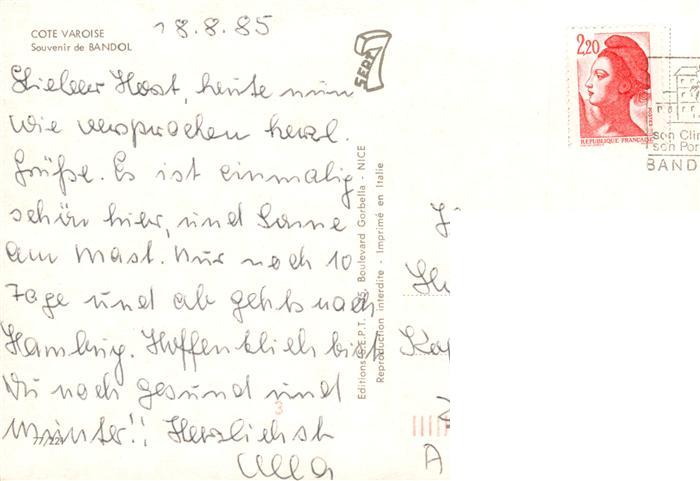 COTE VAROISE
Souvenir de BANDOL
18.8.85
Lieber Horst, heute nun
wie versprochen herzl.
Grüße. Es ist einmalig
schön hier, und Sonne
am Mast. Nur noch 10
Tage und ab gehts nach
Hamburg. Hoffentlich bist
Du noch gesund und
munter!! Herzlichst
Ulla
77/221
SEPT
Editions S.E.P.T. Boulevard Gorbella - NICE
Reproduction interdite - Imprimé en Italie
3
2,20
POSTES
REPUBLIQUE FRANÇAISE
son Clim
son Por
BAND
A